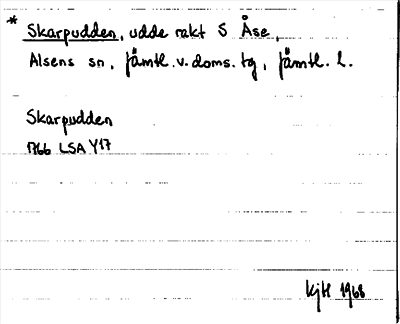 * Skarpudden, udde rakt S Åse,
Alsens sn, Jämtl. v. doms. tg, Jämtl. l.
Skarpudden
1766 LSA Y17
KjH 1968